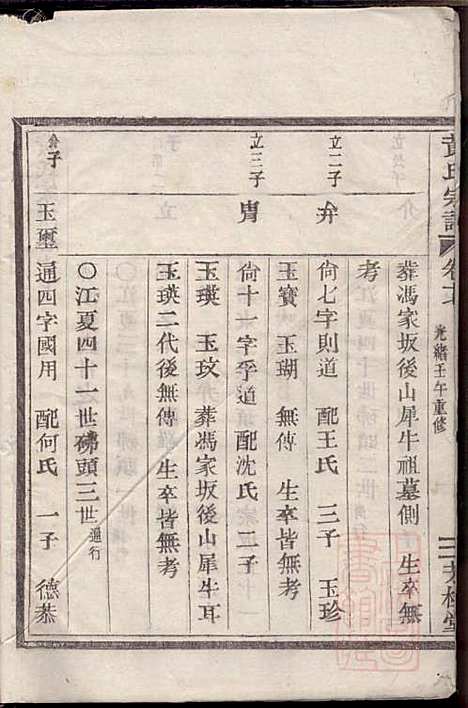 黃氏宗譜
光緒壬午重修
葬馮家坂後山犀牛祖墓側 生卒無
考
立二子
弁
尙七字則道 配王氏 三子 玉珍
玉寶 玉瑚 無傳 生卒皆無考
立三子
冑
尙十一字孚道 配沈氏 二子
玉瑛 玉玟 葬馮家坂後山犀牛耳
玉瑛二代後無傳 生卒皆無考
〇江夏四十一世磗頭三世通行
弁子
玉璽
通四字國用 配何氏 一子 德恭